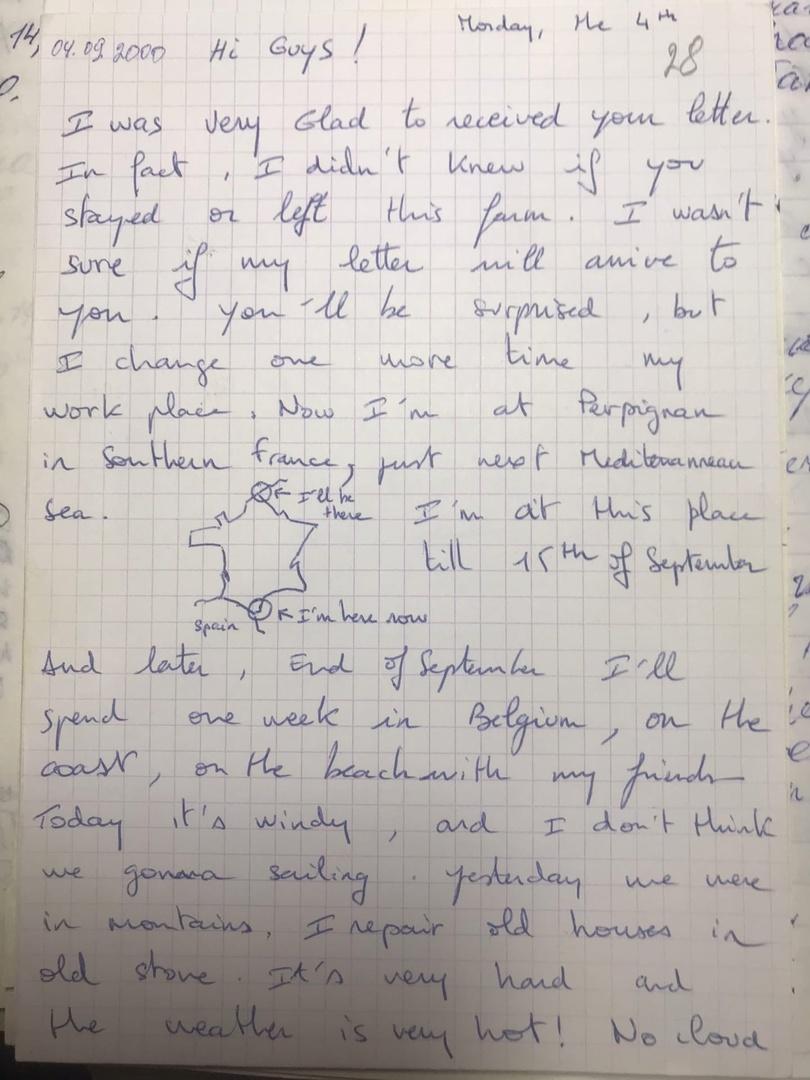 14, 04.09.2000 Hi Guys! Monday, the 4th
28
I was very Glad to received your letter.
In fact, I didn't knew if you
stayed or left this farm. I wasn't
sure if my letter will arrive to
you. You'll be surprised, but
I change one more time my
work place. Now I'm at Perpignan
in Southern France, just next Mediterranneau
Sea.
I'll be
there
I'm at this place
till 15th of September
Spain
I'm here now
And later, End of September I'll
spend one week in Belgium, on the
coast, on the beach with my friends
Today it's windy, and I don't think
we gonna sailing. Yesterday we were
in montains. I repair old houses in
old stone. It's very hard and
the weather is very hot! No cloud